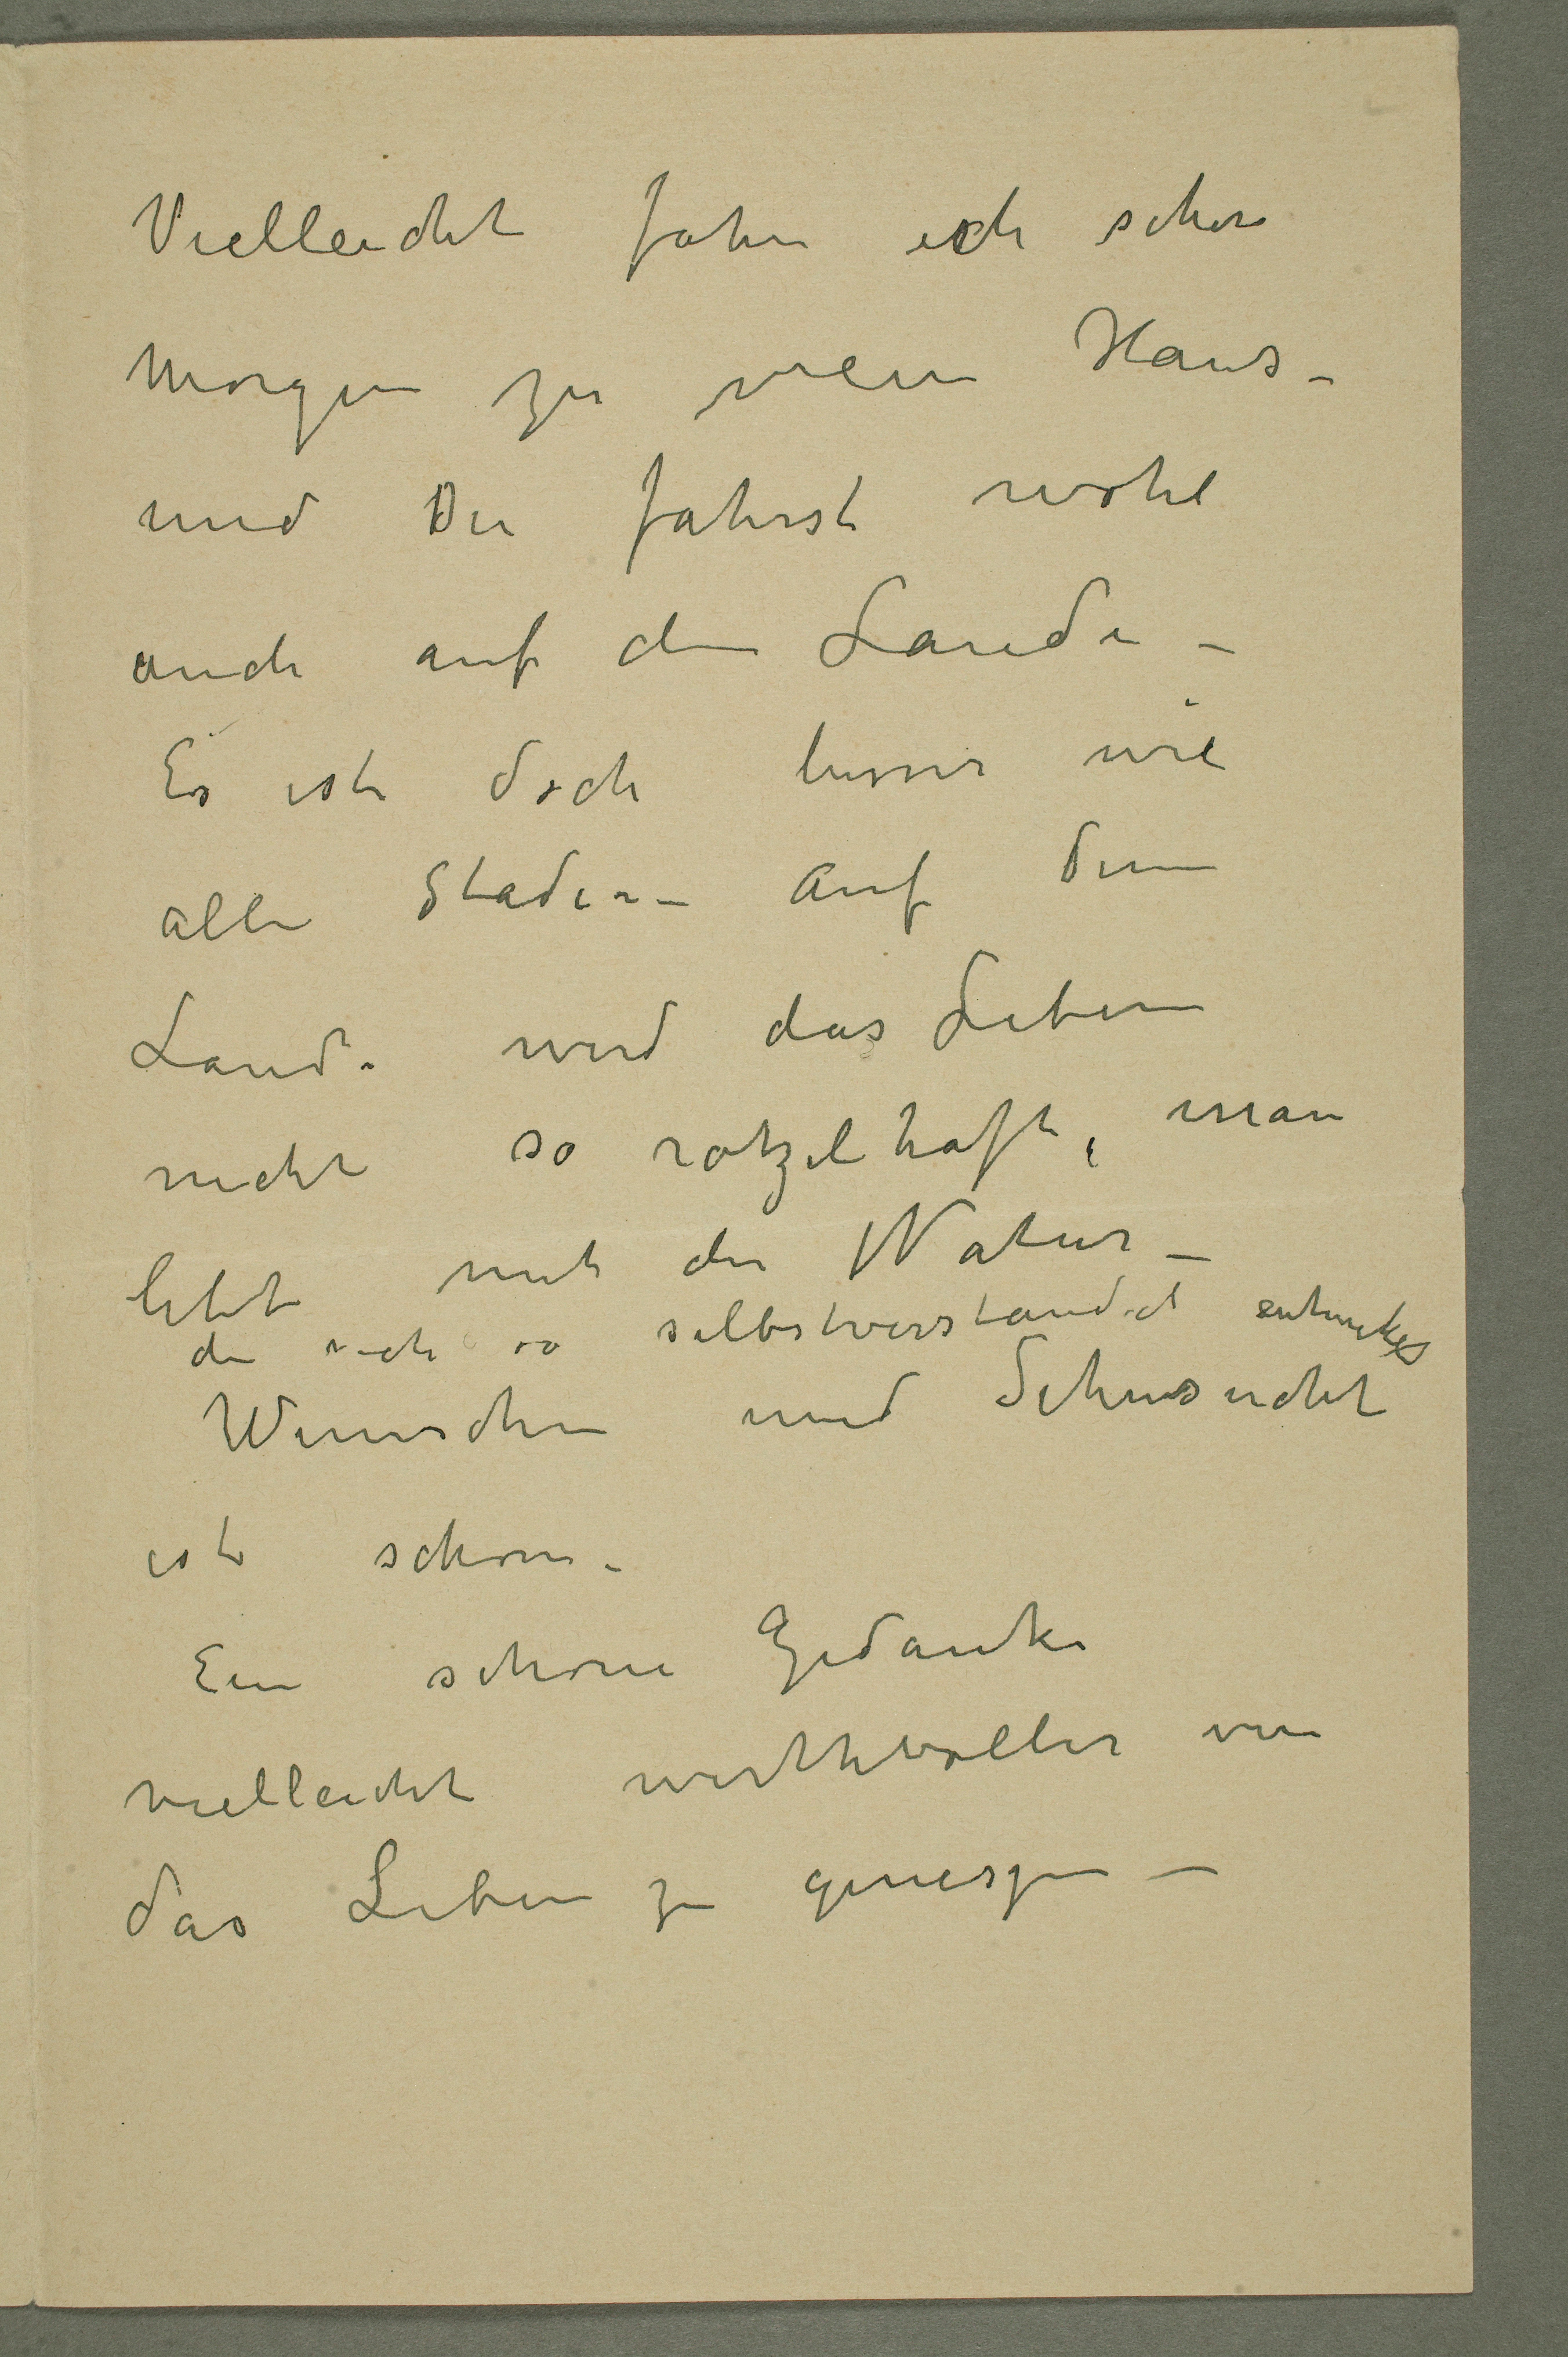 Vielleicht fahre ich schon
Morgen zu mein Haus –
und Du fahrst wohl
auch auf dem Lande –
Es ist doch besser wie
alle Stader – Auf dem
Lande wird das Leben
nicht so ratzelhaft, man
lebt mit der Natur –
die sich so selbstverstandich entwickes
Wunschen und Sehnsucht
ist schon –
Ein schone Gedanke
vielleicht werthvoller von
das Leben zu genieszen –